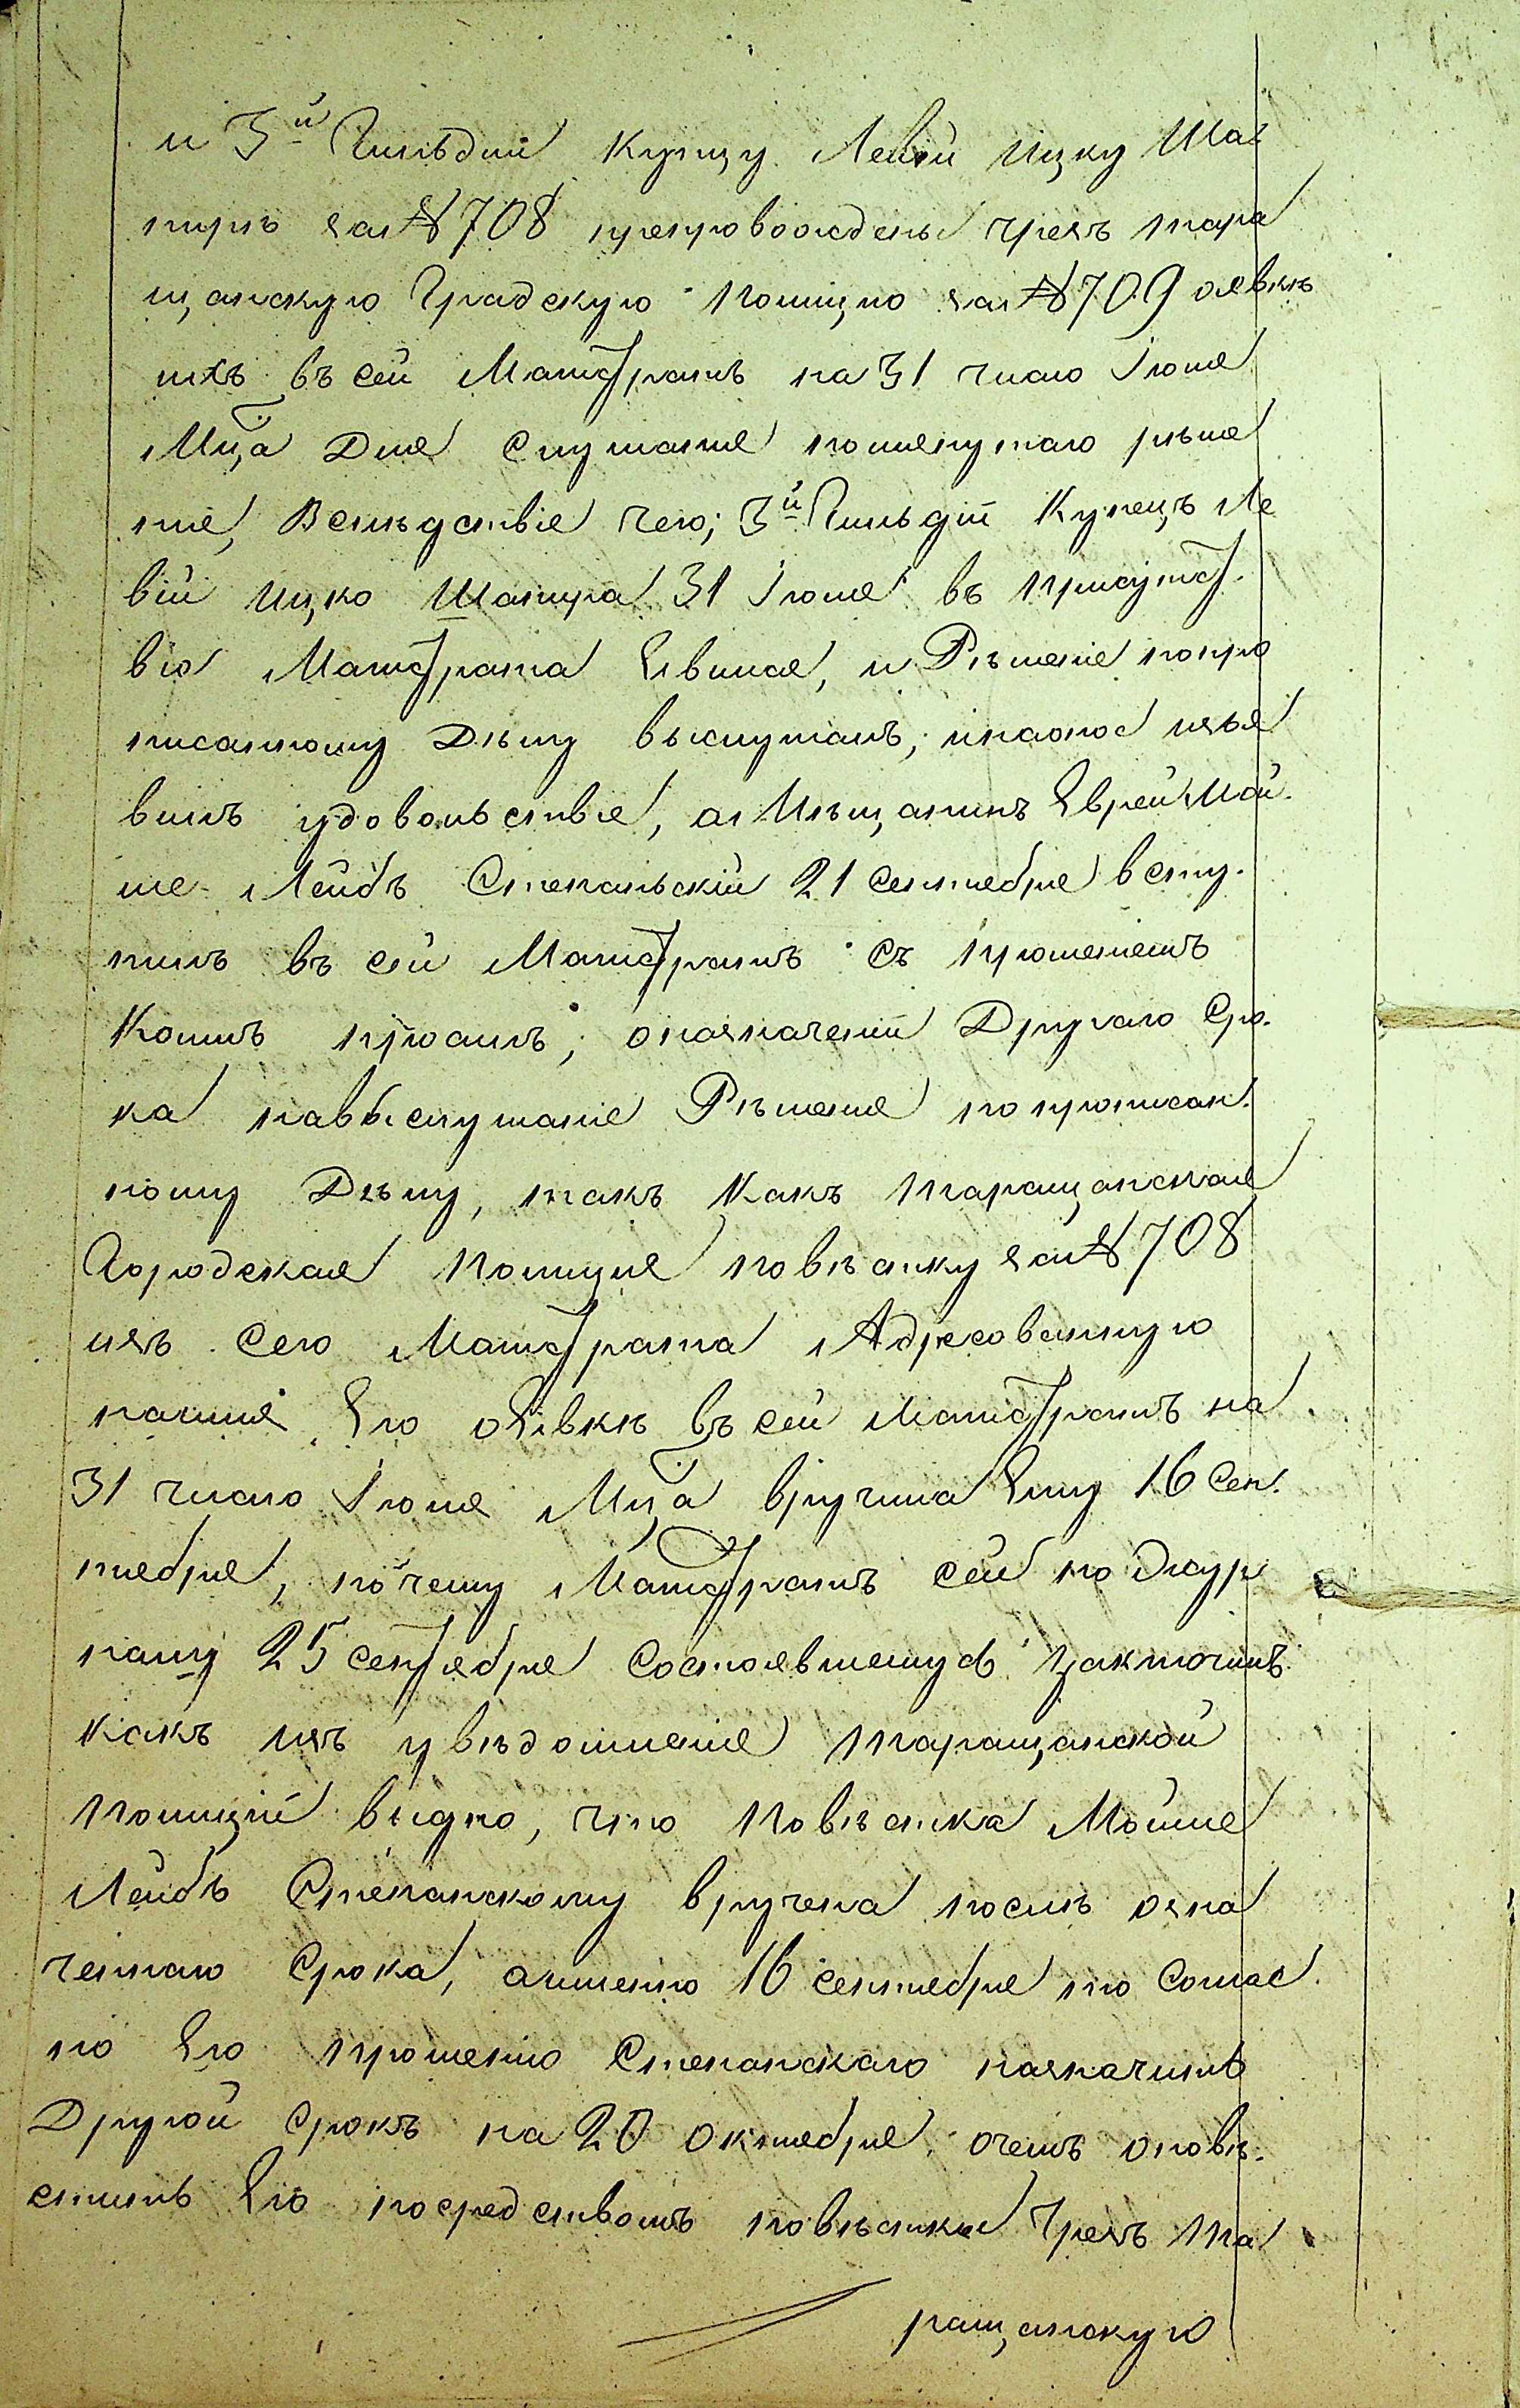 и 3й Гильдіи Купцу Левiй Ицку Ша-
пиръ за № 708 препровождены чрезъ Тара
щанскую Градскую Полицiю за № 709 о явкѣ
ихъ въ сей Магистратъ на 31 число Iюля
Мца Для слушанiя помянутаго рѣше
нiя, Вслѣдствiе чего; 3й Гильдiи Купецъ Ле
вiй Ицко Шапира 31 Iюля въ присутст-
вiе Магистрата Явился, и Рѣшенiе попро
писанному Дѣлу выслушалъ, и наоное изъя
вилъ удовольствiе, а Мѣщанинъ Еврей Мой-
ше Лейбъ Степаньскiй 21 Сентября всту-
пилъ въ сей Магистратъ съ прошенiемъ
Коимъ проситъ; о назначенiи Другаго Сро-
ка навыслушанiе Рѣшенiя попрописан-
ному Дѣлу, такъ Какъ Таращанская
Городская Полицiя повѣстку за № 708
изъ сего Магистрата Адресованную
наимя Его о Явкѣ въ сей Магистратъ на
31 число Iюля Мца вручила Ему 16 Сен-
тября, почему Магистратъ сей по Журн
налу 25 сентября Состоявшемуся заключилъ
какъ изъ увѣдомленiя Таращанской
Полицiи видно, что Повѣстка Мойше
Лейбъ Степанскому вручена послѣ озна
ченнаго Срока, аимено 16 сентября то Соглас
но Его прошенiю Степанскаго назначить
Другой срокъ на 20 Октября, очемъ оповѣ-
стить Его посредствомъ повѣстки Чрезъ Та
ращанскую